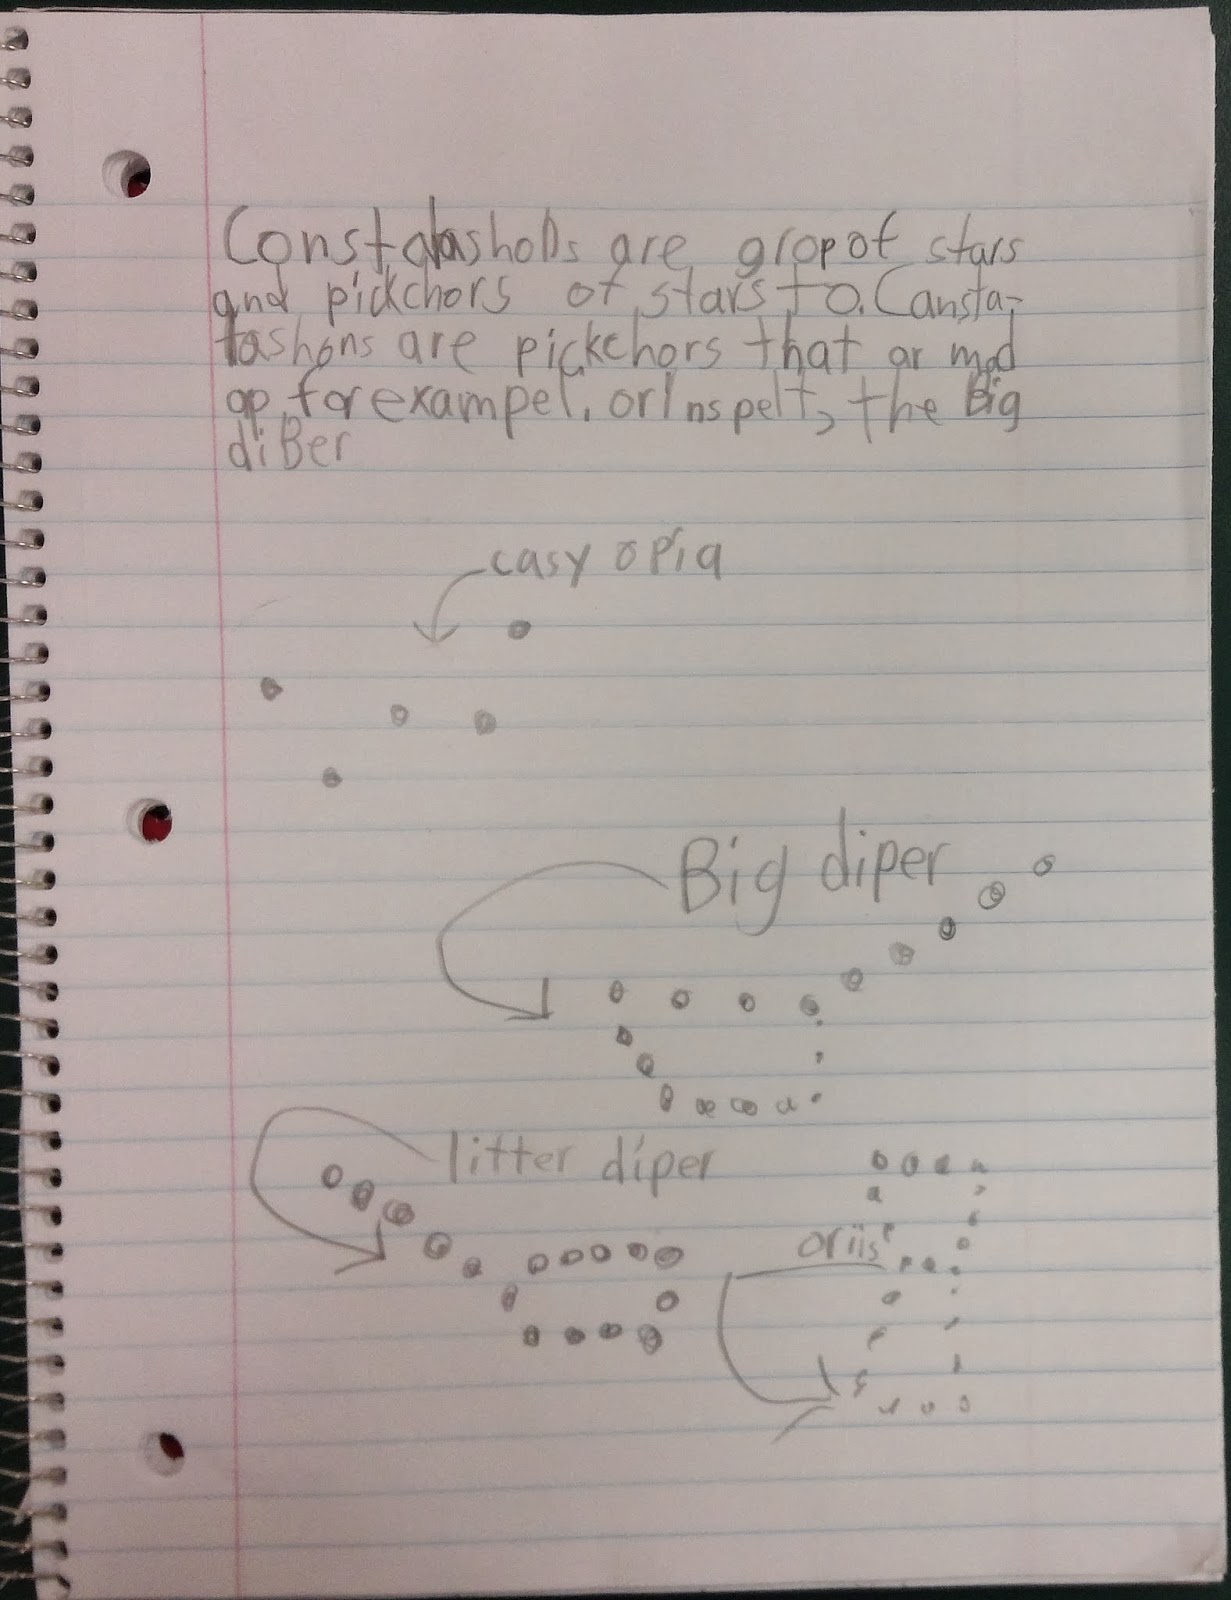 Constalashons are gropof stars
and pickchors of stars to. Cansta-
tashons are pickchors that ar mad
op for exampel. orInspelt, the Big
diBer
casyopia
Big diper
litter diper
oriis